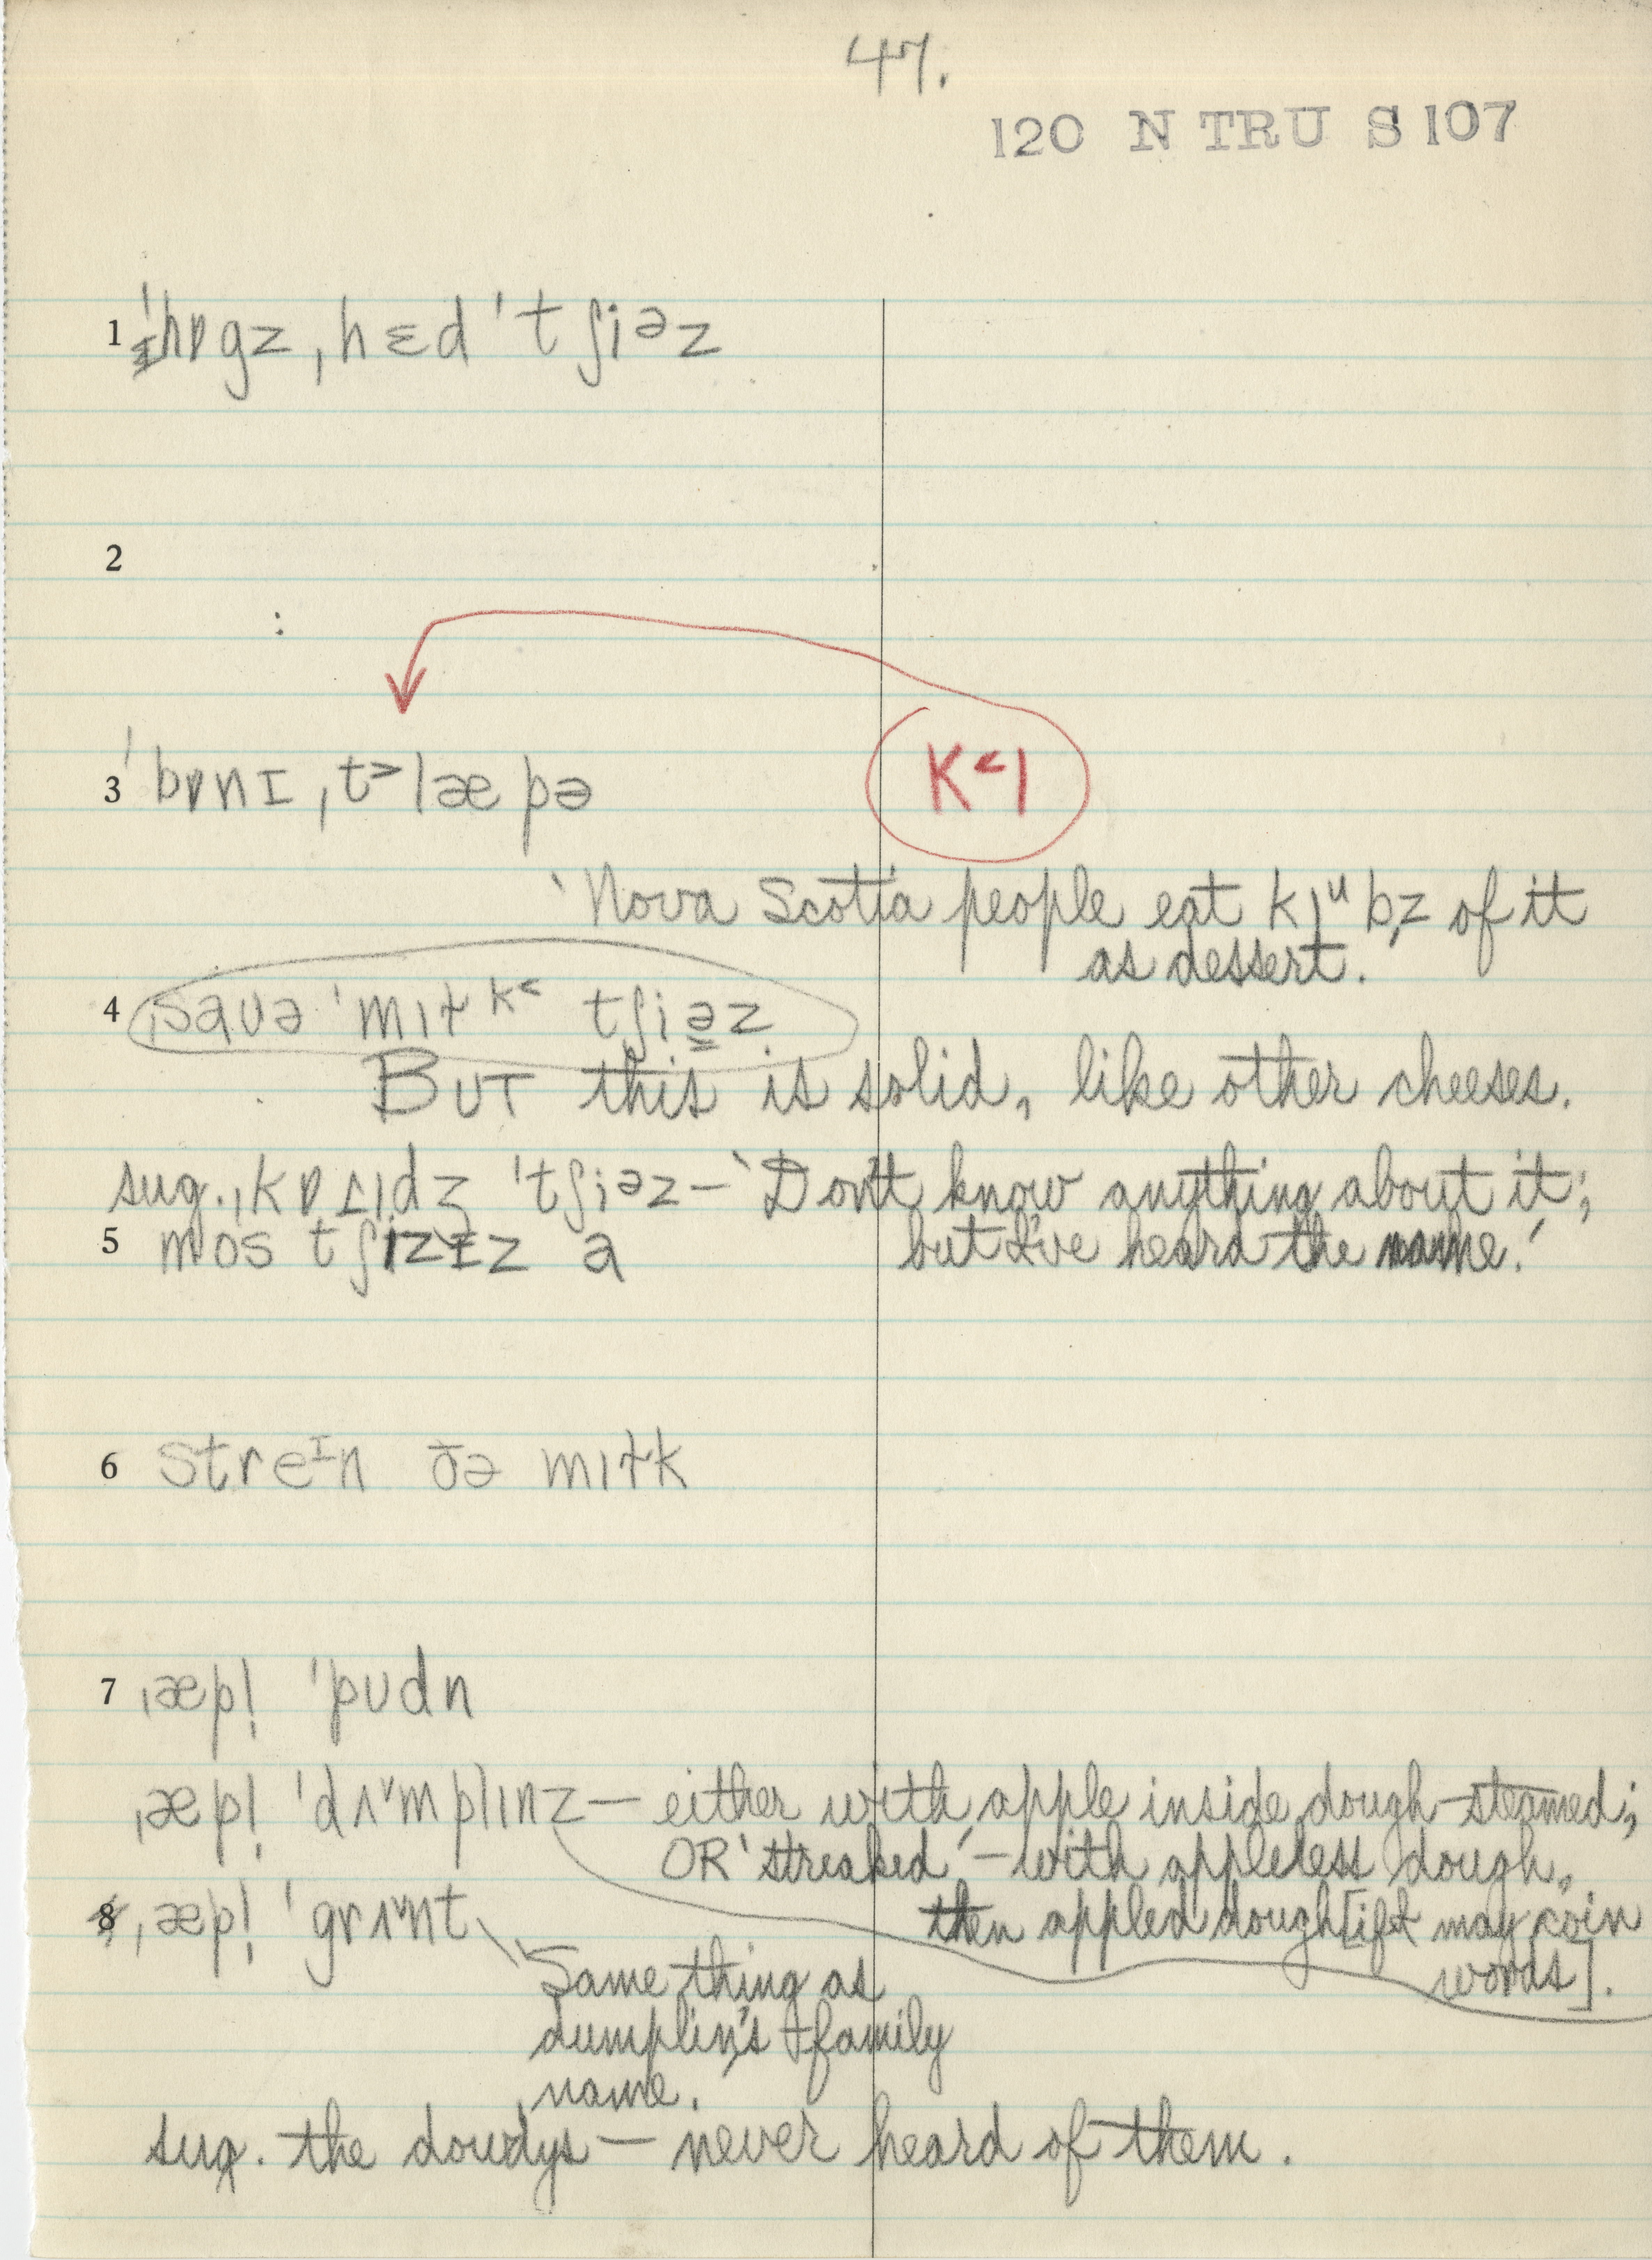 47.
120 N TRU S 107
1 ˈhɒgz ˌhɛd ˈtʃiəz
2
3 ˈbɒnɪ ˌt˃læpə
K˂l
'Nova Scotia people eat of it
as dessert.'
4 ˌsɑʊə ˈmɪɫk˂ tʃiəz.
BUT this is solid, like other cheeses.
sug. ˌkɒɪdʒ ˈtʃiəz – 'Don't know anything about it;
5 mos tʃizɪz a but I've heard the name.'
6 streᶦn ðə mɪɫk
7 ˌæpl̩ ˈpʊdn
ˌæpl̩ ˈdʌmplɪnz – either with apple inside dough – steamed;
OR 'streaked' – with appleless dough,
8 ˌæpl̩ ˈgrʌnt then appled dough [if I may coin
words].
Same thing as
dumplin's family
name.
sug. the dowdys – never heard of them.